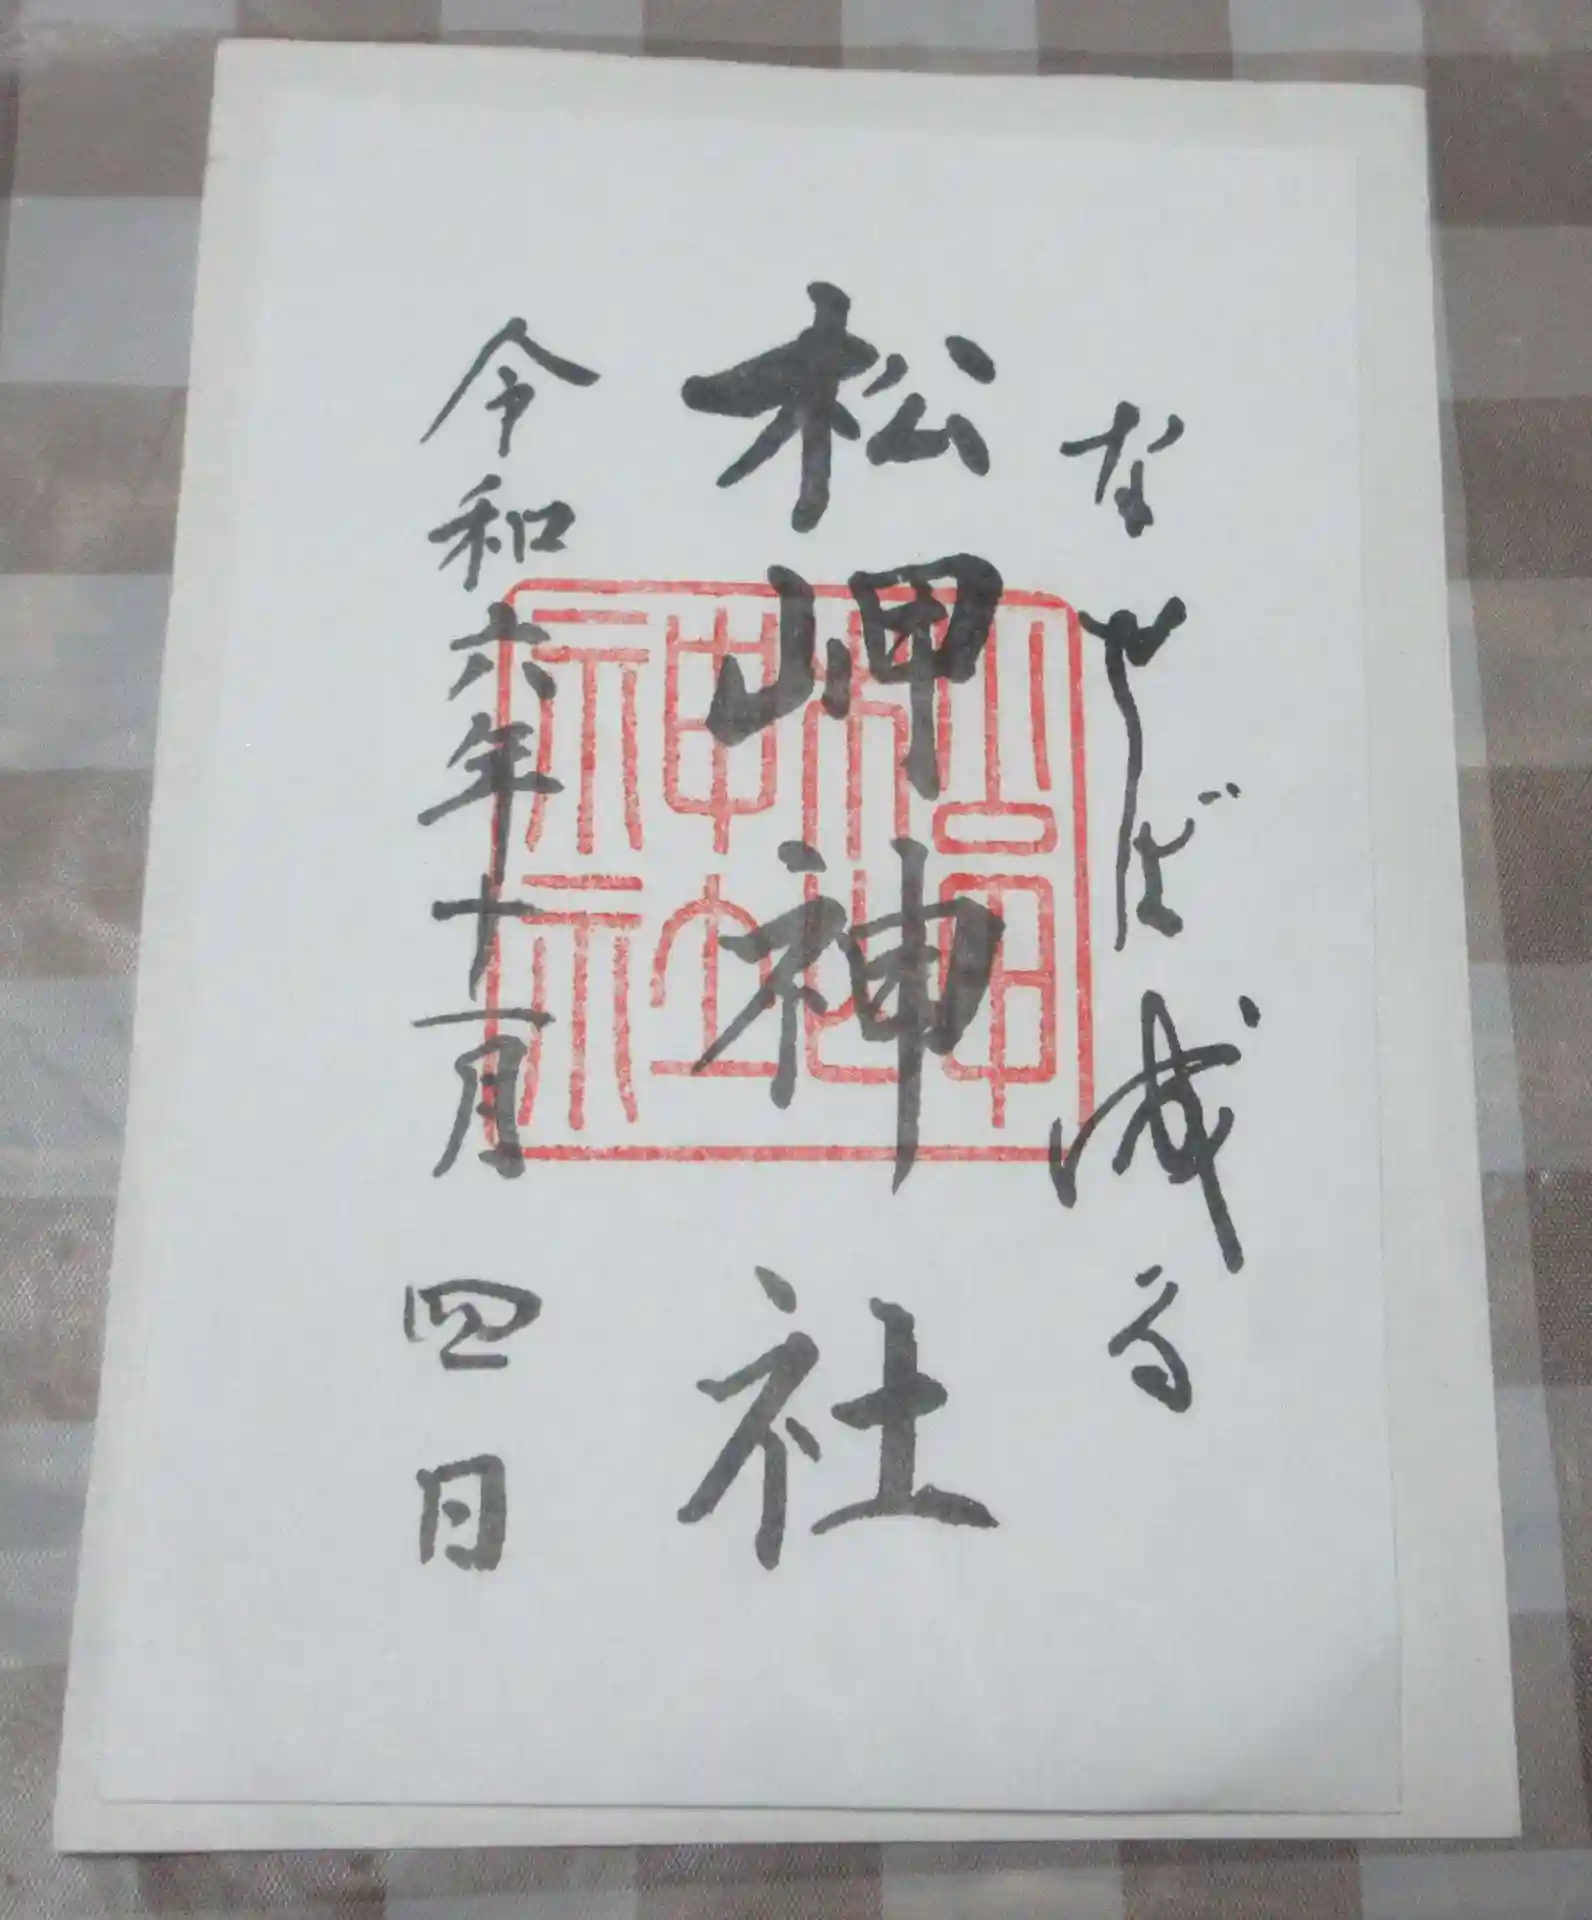 なせば成る
松岬神社
令和六年十一月四日
松岬神社